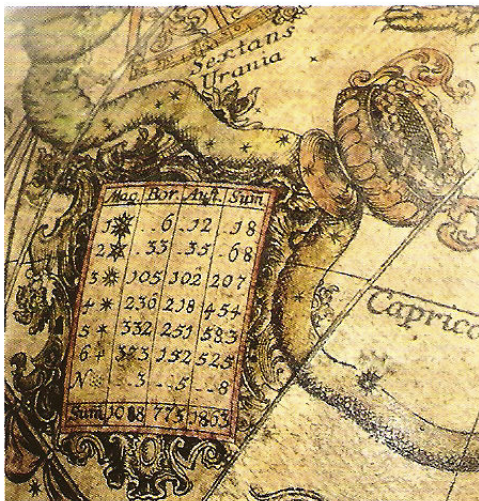 Sextans
Urania
Mag. Bor. Auſt. Sum.
1 ..6 .12 .18
2 .33 .35 .68
3 105 102 207
4 236 218 454
5 332 251 583
6 373 152 525
N ..3 ..5 ..8
Sum 1088 775 1863
Caprico